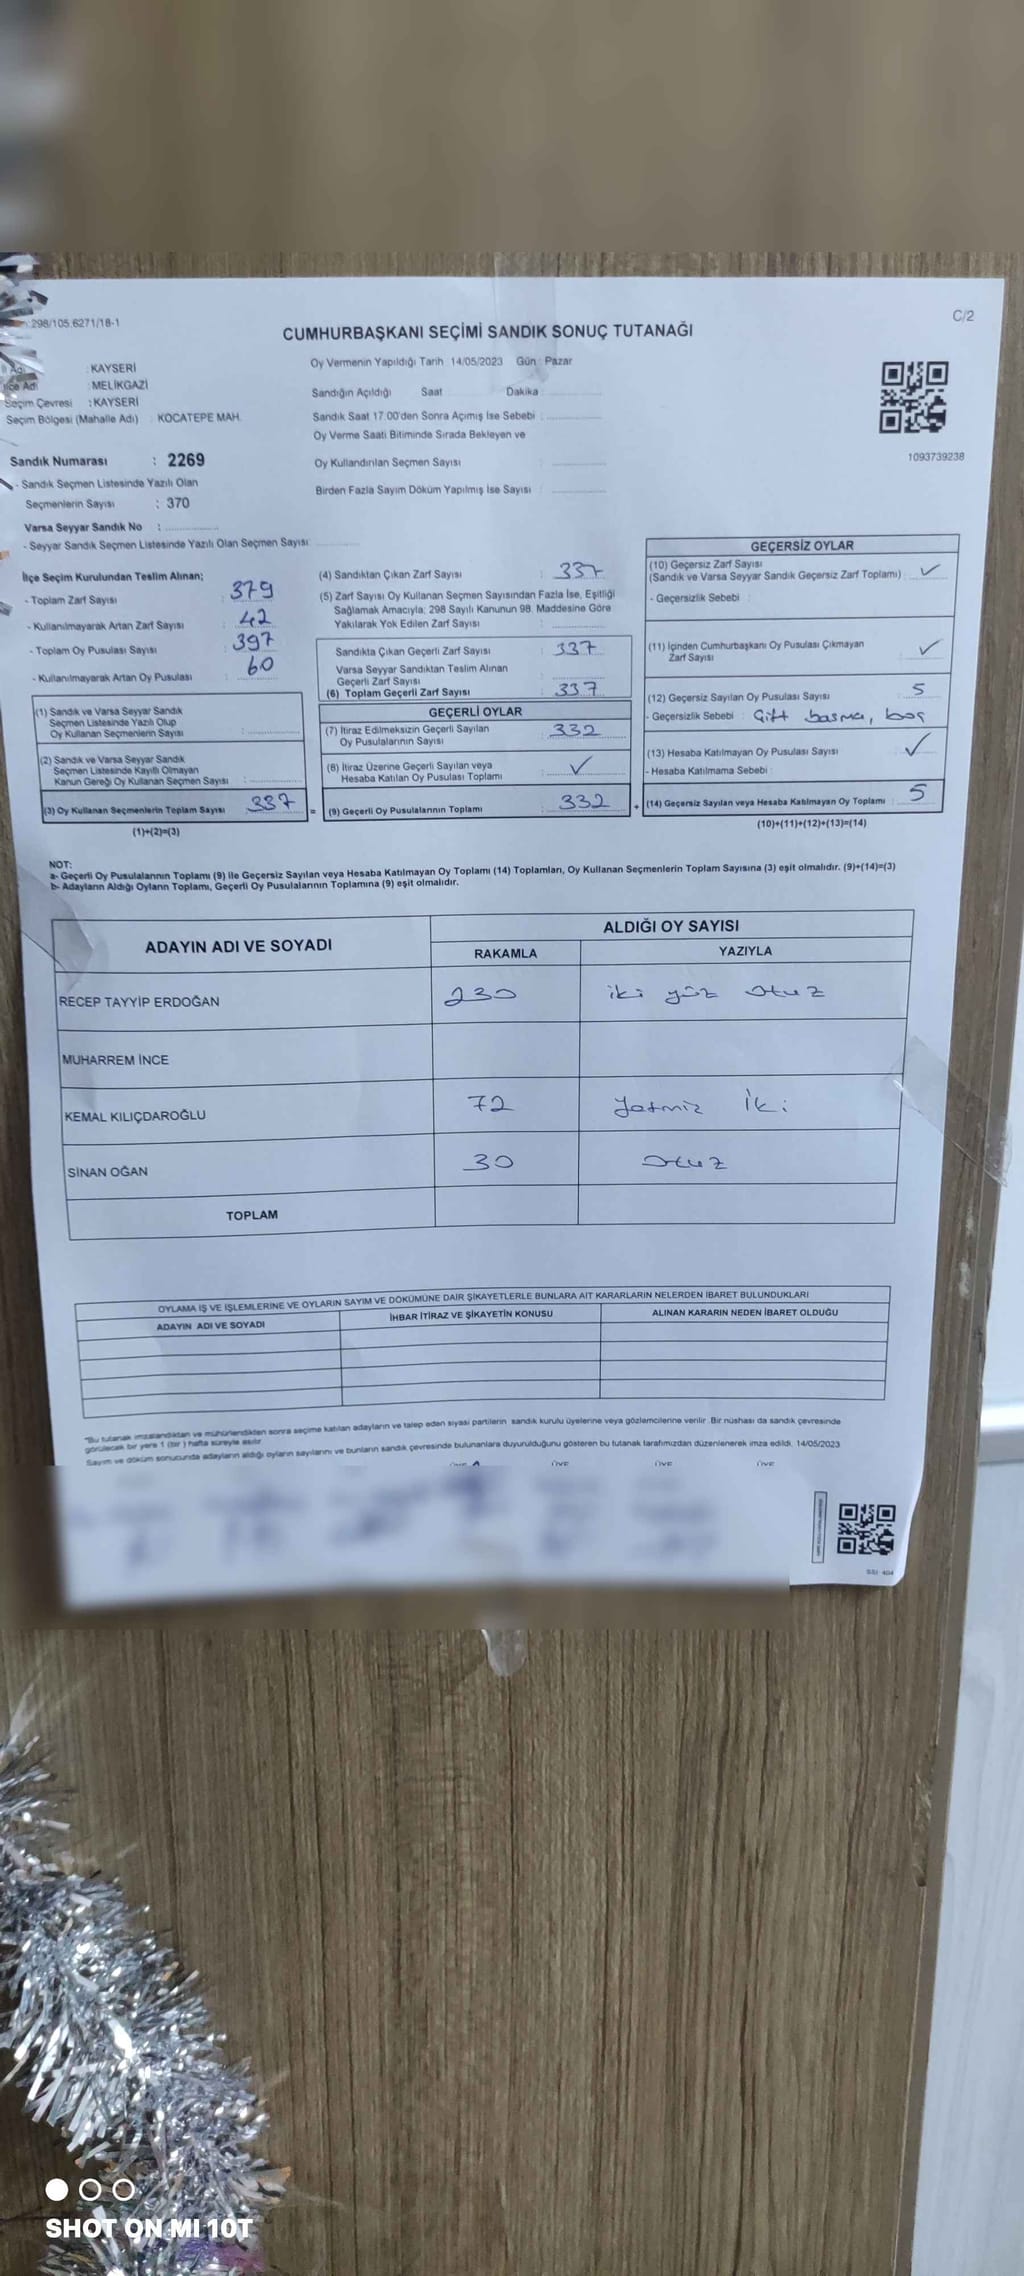 298/105.6271/18-1
C/2
CUMHURBAŞKANI SEÇİMİ SANDIK SONUÇ TUTANAĞI
Adı : KAYSERİ
İlçe Adı : MELİKGAZİ
Seçim Çevresi : KAYSERİ
Seçim Bölgesi (Mahalle Adı) : KOCATEPE MAH.
Oy Vermenin Yapıldığı Tarih 14/05/2023 Gün : Pazar
Sandığın Açıldığı Saat Dakika
Sandık Saat 17.00'den Sonra Açımış İse Sebebi :
Oy Verme Saati Bitiminde Sırada Bekleyen ve
Oy Kullandırılan Seçmen Sayısı :
Birden Fazla Sayım Döküm Yapılmış İse Sayısı :
1093739238
Sandık Numarası : 2269
- Sandık Seçmen Listesinde Yazılı Olan
Seçmenlerin Sayısı : 370
Varsa Seyyar Sandık No :
- Seyyar Sandık Seçmen Listesinde Yazılı Olan Seçmen Sayısı
İlçe Seçim Kurulundan Teslim Alınan;
- Toplam Zarf Sayısı : 379
- Kullanılmayarak Artan Zarf Sayısı : 42
- Toplam Oy Pusulası Sayısı : 397
- Kullanılmayarak Artan Oy Pusulası : 60
(1) Sandık ve Varsa Seyyar Sandık
Seçmen Listesinde Yazılı Olup
Oy Kullanan Seçmenlerin Sayısı :
(2) Sandık ve Varsa Seyyar Sandık
Seçmen Listesinde Kayıtlı Olmayan
Kanun Gereği Oy Kullanan Seçmen Sayısı :
(3) Oy Kullanan Seçmenlerin Toplam Sayısı 337 =
(1)+(2)=(3)
(4) Sandıktan Çıkan Zarf Sayısı : 337
(5) Zarf Sayısı Oy Kullanan Seçmen Sayısından Fazla İse, Eşitliği
Sağlamak Amacıyla; 298 Sayılı Kanunun 98. Maddesine Göre
Yakılarak Yok Edilen Zarf Sayısı :
Sandıkta Çıkan Geçerli Zarf Sayısı : 337
Varsa Seyyar Sandıktan Teslim Alınan
Geçerli Zarf Sayısı :
(6) Toplam Geçerli Zarf Sayısı : 337
GEÇERLİ OYLAR
(7) İtiraz Edilmeksizin Geçerli Sayılan
Oy Pusulalarının Sayısı : 332
(8) İtiraz Üzerine Geçerli Sayılan veya
Hesaba Katılan Oy Pusulası Toplamı : ✓
(9) Geçerli Oy Pusulalarının Toplamı : 332 +
GEÇERSİZ OYLAR
(10) Geçersiz Zarf Sayısı
(Sandık ve Varsa Seyyar Sandık Geçersiz Zarf Toplamı) : ✓
- Geçersizlik Sebebi :
(11) İçinden Cumhurbaşkanı Oy Pusulası Çıkmayan
Zarf Sayısı : ✓
(12) Geçersiz Sayılan Oy Pusulası Sayısı : 5
- Geçersizlik Sebebi : Çift basma, boş
(13) Hesaba Katılmayan Oy Pusulası Sayısı : ✓
- Hesaba Katılmama Sebebi :
(14) Geçersiz Sayılan veya Hesaba Katılmayan Oy Toplamı : 5
(10)+(11)+(12)+(13)=(14)
NOT:
a- Geçerli Oy Pusulalarının Toplamı (9) ile Geçersiz Sayılan veya Hesaba Katılmayan Oy Toplamı (14) Toplamları, Oy Kullanan Seçmenlerin Toplam Sayısına (3) eşit olmalıdır. (9)+(14)=(3)
b- Adayların Aldığı Oyların Toplamı, Geçerli Oy Pusulalarının Toplamına (9) eşit olmalıdır.
ADAYIN ADI VE SOYADI
ALDIĞI OY SAYISI
RAKAMLA YAZIYLA
RECEP TAYYİP ERDOĞAN 230 iki yüz otuz
MUHARREM İNCE
KEMAL KILIÇDAROĞLU 72 Yetmiz İki
SİNAN OĞAN 30 Otuz
TOPLAM
OYLAMA İŞ VE İŞLEMLERİNE VE OYLARIN SAYIM VE DÖKÜMÜNE DAİR ŞİKAYETLERLE BUNLARA AİT KARARLARIN NELERDEN İBARET BULUNDUKLARI
ADAYIN ADI VE SOYADI İHBAR İTİRAZ VE ŞİKAYETİN KONUSU ALINAN KARARIN NEDEN İBARET OLDUĞU
*Bu tutanak imzalandıktan ve mühürlendikten sonra seçime katılan adayların ve talep eden siyasi partilerin sandık kurulu üyelerine veya gözlemcilerine verilir. Bir nüshası da sandık çevresinde
görülecek bir yere 1 (bir) hafta süreyle asılır
Sayım ve döküm sonucunda adayların aldığı oyların sayılarını ve bunların sandık çevresinde bulunanlara duyurulduğunu gösteren bu tutanak tarafımızdan düzenlenerek imza edildi. 14/05/2023
ÜYE ÜYE ÜYE
SHOT ON MI 10T